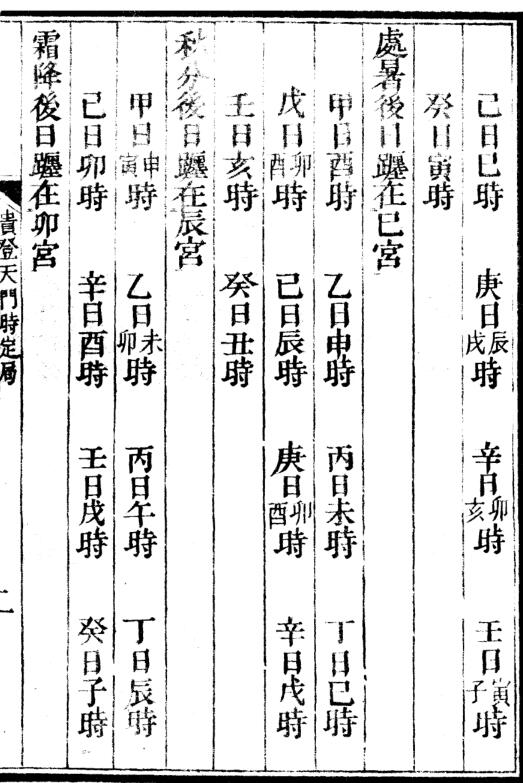 己日巳時　庚日辰戌時　辛日卯亥時　壬日寅子時
癸日寅時
處暑後日躔在巳宮
甲日酉時　乙日申時　丙日未時　丁日巳時
戊日卯酉時　己日辰時　庚日卯酉時　辛日戌時
壬日亥時　癸日丑時
秋分後日躔在辰宮
甲日申寅時　乙日未卯時　丙日午時　丁日辰時
己日卯時　辛日酉時　壬日戌時　癸日子時
霜降後日躔在卯宮
貴登天門時定局　二